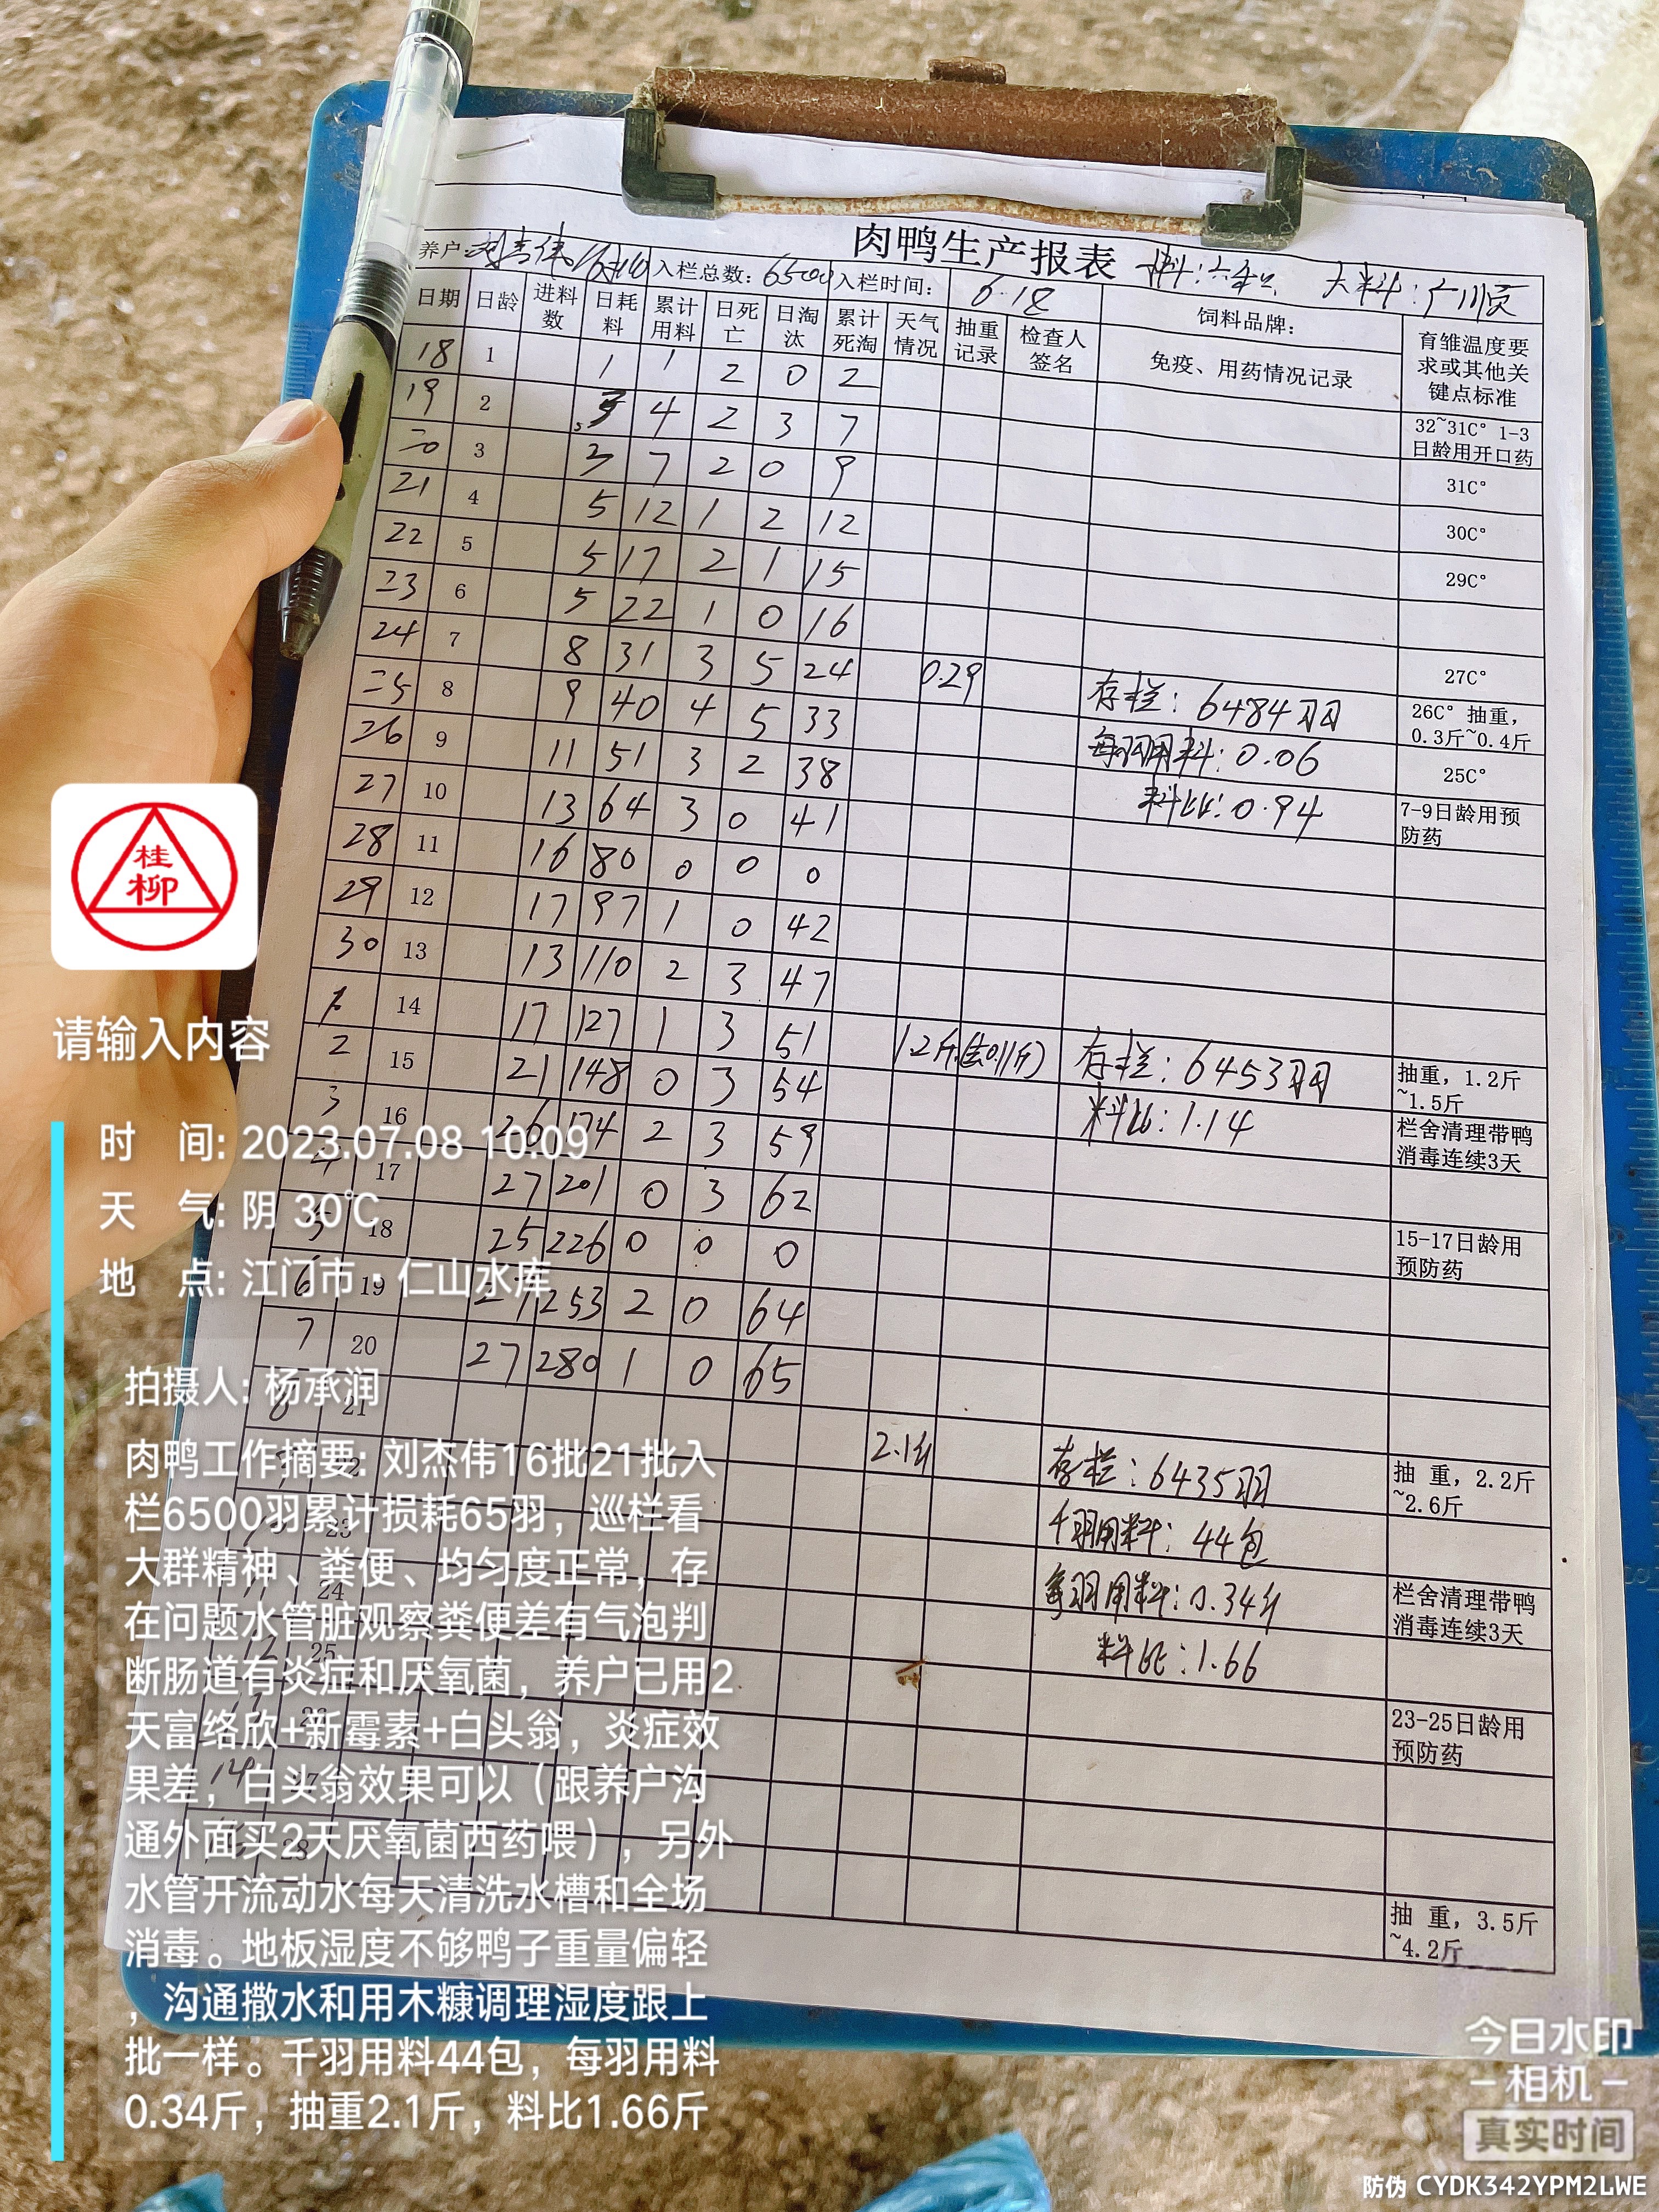 肉鸭生产报表
养户: 刘杰伟 入栏总数: 6500 入栏时间: 6.18 料: 大料:
日期 日龄 进料数 日耗料 累计用料 日死亡 日淘汰 累计死淘 天气情况 抽重记录 检查人签名 饲料品牌: 免疫、用药情况记录 育雏温度要求或其他关键点标准
18 1 1 1 2 0 2
19 2 3 4 2 3 7 32~31C° 1-3日龄用开口药
20 3 3 7 2 0 9 31C°
21 4 5 12 1 2 12 30C°
22 5 5 17 2 1 15 29C°
23 6 5 22 1 0 16
24 7 8 31 3 5 24 0.29 存栏: 6484羽 27C°
25 8 9 40 4 5 33 每羽用料: 0.06 26C° 抽重, 0.3斤~0.4斤
26 9 11 51 3 2 38 料比: 0.94 25C°
27 10 13 64 3 0 41 7-9日龄用预防药
28 11 16 80 0 0 0
29 12 17 97 1 0 42
30 13 13 110 2 3 47
1 14 17 127 1 3 51 1.2斤(去0.11斤) 存栏: 6453羽
2 15 21 148 0 3 54 料比: 1.14 抽重, 1.2斤~1.5斤
3 16 26 174 2 3 59 栏舍清理带鸭消毒连续3天
4 17 27 201 0 3 62
5 18 25 226 0 0 0 15-17日龄用预防药
6 19 27 253 2 0 64
7 20 27 280 1 0 65
8 21 2.1斤 存栏: 6435羽
22 千羽用料: 44包 抽 重, 2.2斤~2.6斤
23 每羽用料: 0.34斤
24 料比: 1.66 栏舍清理带鸭消毒连续3天
25
26 23-25日龄用预防药
14 27
28
抽 重, 3.5斤~4.2斤
桂柳
请输入内容
时 间: 2023.07.08 10:09
天 气: 阴 30℃
地 点: 江门市·仁山水库
拍摄人: 杨承润
肉鸭工作摘要: 刘杰伟16批21批入
栏6500羽累计损耗65羽，巡栏看
大群精神、粪便、均匀度正常，存
在问题水管脏观察粪便差有气泡判
断肠道有炎症和厌氧菌，养户已用2
天富络欣+新霉素+白头翁，炎症效
果差，白头翁效果可以（跟养户沟
通外面买2天厌氧菌西药喂），另外
水管开流动水每天清洗水槽和全场
消毒。地板湿度不够鸭子重量偏轻
，沟通撒水和用木糠调理湿度跟上
批一样。千羽用料44包，每羽用料
0.34斤，抽重2.1斤，料比1.66斤
今日水印
相机
真实时间
防伪 CYDK342YPM2LWE